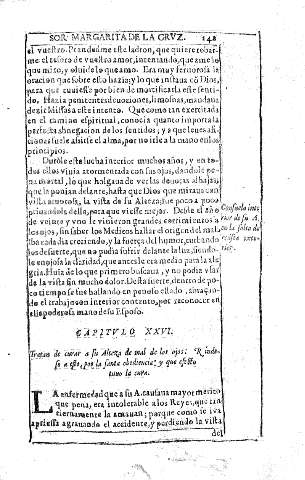 SOR. MARGARITA DE LA CRVZ. 148
el vuestro. Prendedme este ladron, que quiere robar-
me el tesoro de vuestro amor, intentando, que ame lo
que miro, y olvide lo que amo. Era muy fervorosa la
oracion que sobre esto hazia; y lo que instaua cõ Dios,
para que tuuiesse por bien de mortificarla este senti-
do. Hazia penitentes deuociones, limosnas, mandaua
dezir Missas a este intento. Que como tan exercitada
en el camino espiritual, conocia quanto importa la
perfecta abnegacion de los sentidos; y a que leues afi-
ciones suele asirse el alma, por no irle a la mano en los
principios.
Duróle esta lucha interior muchos años, y en to-
dos ellos viuia atormentada con sus ojos, dandole pe-
na mortal, lo que holgaua de ver las cosas alhajas,
que la ponian delante, hasta que Dios que miraua tan
vista amorosa, la vista de su Alteza, fue poco a poco
priuandola della, para que viesse mejor. Desde el año
de veinte y vno le vinieron grandes corrimientos a
los ojos, sin saber los Medicos hallar el origen del mal.
Iba cada dia creciendo, y la fuerça del humor, turbando
los de suerte, que no podia sufrir delante la luz, siendo-
le enojosa la claridad, que antes le era medio para la ale-
gria. Huia de lo que primero buscaua, y no podia vsar
de la vista sin mucho dolor. Desta suerte, dentro de po-
co tiempo se fue hallando en penoso estado, aunque
de el trabajo con interior contento, por reconocer en
el la poderosa mano de su Esposo.
Consuelo inte-
rior de su A.
en la falta de
vista exte-
rior.
CAPITVLO XXVI.
Tratan de curar a su Alteza de mal de los ojos: Rinde-
se a esto, por la santa obediencia; y que efecto
tuuo la cura.
LA enfermedad que a su A. causaua mayor merito
que pena, era intolerable a los Reyes, que tan
tiernamente la amauan; parque como se iva
apriessa agrauando el accidente, y perdiendo la vista
del